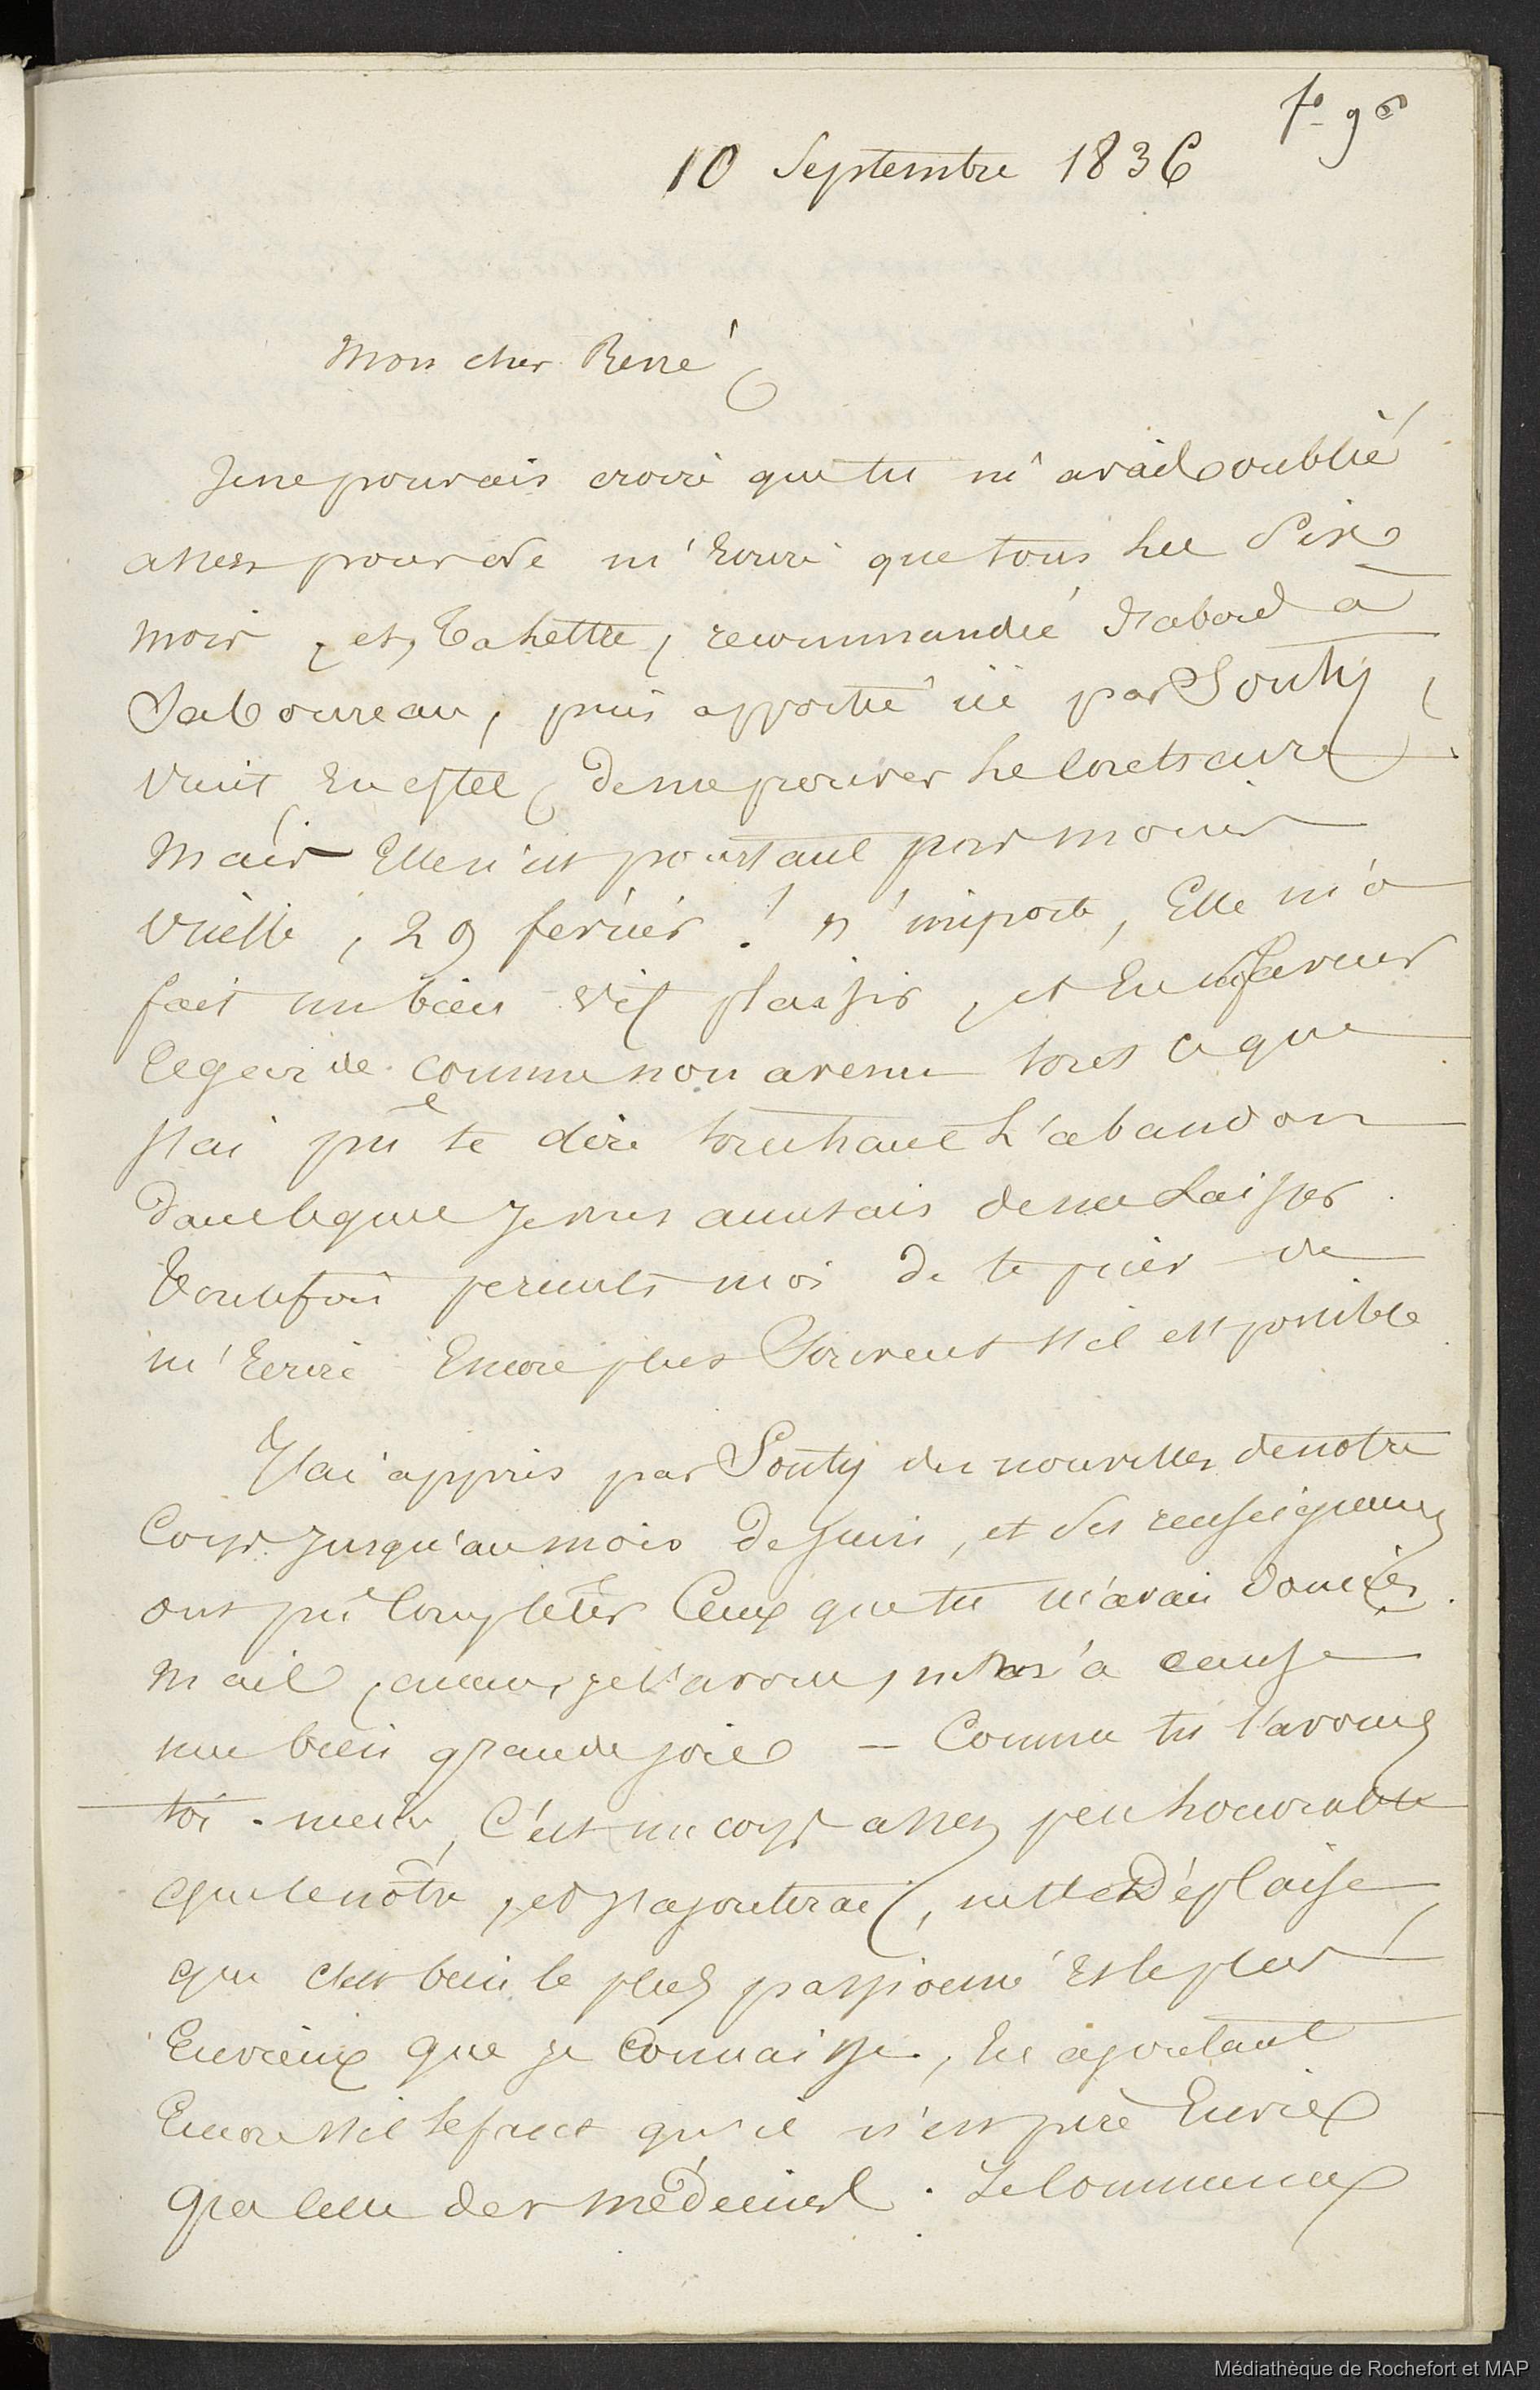 fo 96
10 Septembre 1836
Mon cher René,
Je ne pouvais croire que tu m'avais oublié
assez pour de m'Ecrire que tous Les Six
mois, et, ta Lettre, recommandée d'abord à
Saboureau, puis apportée ici par Souty,
vient En effet, de me prouver Le Contraire
Mais Elle n'est pourtant pas moins
vieille, 29 février ! n'importe, Elle m'a
fait un bien vif plaisir, et En sa faveur
regarde comme non avenu tout ce que
J'ai pu te dire touchant L'abandon
dans lequel Je vous accusais de me Laisser.
Toutefois permets moi de te prier de
m'Ecrire Encore plus Souvent s'il est possible
J'ai appris par Souty des nouvelles de notre
Corps Jusqu'au mois de Juin, et Ses renseignemens
ont pu Compléter Ceux que tu m'avais donnés.
Mais, aucun, je l'avoue, ne m'a causé
une bien grande joie — Comme tu l'avoues
toi-même, C'est un corps assez peu honorable
que le nôtre, et J'ajouterai, ne t'en Déplaise
que c'est bien le plus passionné Et le plus
Envieux que je Connaisse, En ajoutant
Encore s'il le faut qu'il n'est pire Envie
que celle des médecins. Je Commence
Médiathèque de Rochefort et MAP